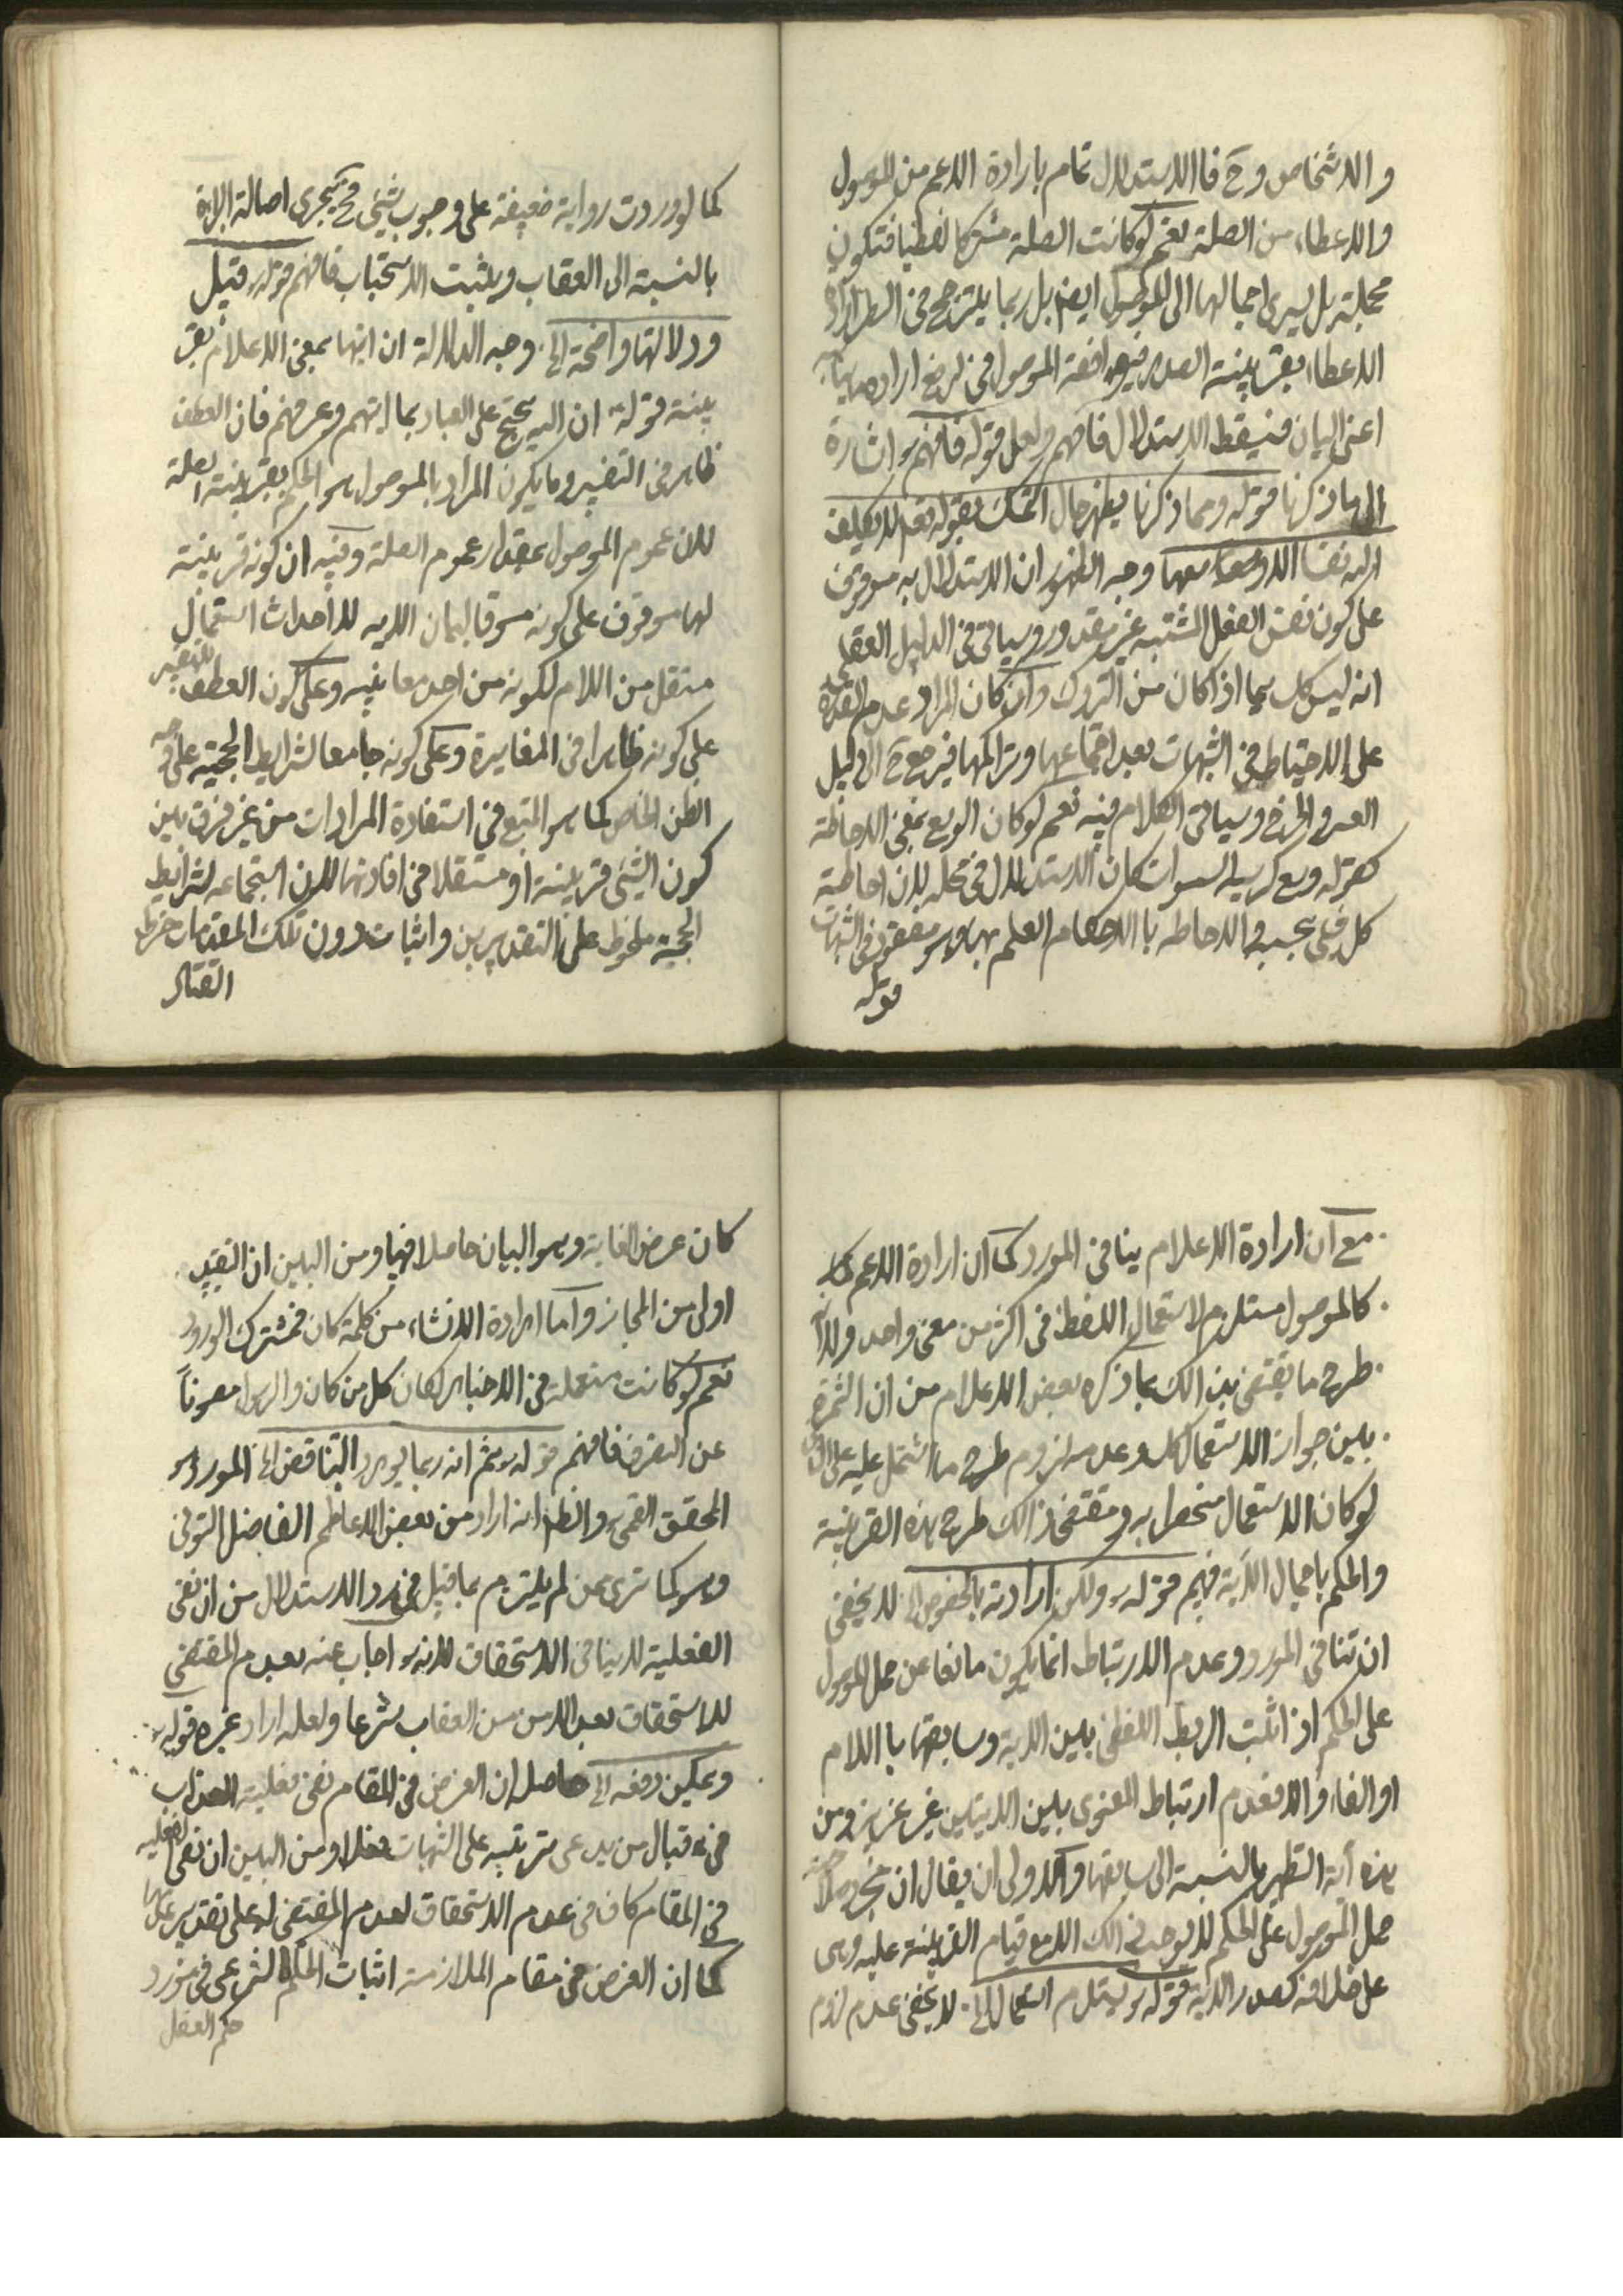 والاشخاص وح فاالاستدلال تمام بارادة الاعم من الموصول
والاعطاء من الصلة نعم لو كانت الصلة مشتركا لفظيا فتكون
مجملة بل يسرى اجمالها الى الموصول ايضا بل ربما يلتزم ح في
الاعطاء بقرينة الصدر فيوافقه الموصول في ارادة
اعنى البيان فيسقط الاستدلال فافهم ولعل قوله فافهم اشارة
الى ما ذكرنا قوله ومما ذكرنا يظهر حال التمسك بقوله تعالى لا يكلف
الله نفسا الا وسعها وجه الظهور ان الاستدلال به موقوف
على كون نفس الفعل المشتبه غير مقدور وسياتى في الدليل العقلى
انه ليس كك سيما اذا كان من التروك وان كان المراد عدم القدرة
على الاحتياط في الشبهات بعد اجتماعها وتراكمها فيرجع ح الى دليل
العسر والحرج وسياتى الكلام فيه نعم لو كان الوسع بمعنى الاحاطة
كقوله وسع كرسيه السموات كان الاستدلال في محله لان احاطة
كل شىء بحسبه والاحاطه باالاحكام العلم بها وهو مفقود في الشبهات
قوله
كما لو وردت رواية ضعيفة على وجوب شىء فح يجرى اصالة البراءة
بالنسبة الى العقاب ويثبت الاستحباب فافهم قوله قيل
ودلالتها واضحة الخ وجه الدلالة ان ايتها بمعنى الاعلام بقر
ينة قوله ان الله يحتج على العباد بما اتيهم وعرفهم فان العطف
ظاهر في التفسير وما يكون المراد بالموصول هو الحكم بقرينة الصلة
لان عموم الموصول بمقدار عموم الصلة وفيه ان كونه قرينة
لها موقوف على كونه مسوقا لبيان الايه لا احداث استعمال
مستقل من اللام لكونه من احد معانيه وعلى كون العطف للتفسير
على كونه ظاهرا في المغايرة وعلى كونه جامعا لشرايط الحجية على وجه
الظن الخاص كما هو المتبع في استفادة المرادات من غير فرق بين
كون الشىء قرينة او مستقلا في افادتها لان استجماعه لشرايط
الحجية ملحوظ على التقديرين واثبات دون تلك المقدمات خرط
القتاد
مع ان ارادة الاعلام ينافى المورد كما ان ارادة الاعم
كالموصول مستلزم لاستعمال اللفظ في اكثر من معنى واحد
طرح ما يقتضى بذالك بما ذكره بعض الاعلام من ان الثمرة
بين جواز الاستعمال كك وعدمه لزوم طرح ما اشتمل عليه على
لو كان الاستعمال منحصرا به ومقتضى ذالك طرح هذه القرينة
والحكم باجمال الاية فيهم قوله ولكن ارادته بالخصوص الخ لا يخفى
ان تنافى المورد وعدم الارتباط انما يكون مانعا عن حمل الموصول
على الحكم اذ اثبت الربط اللفظى بين الاية وسابقها باللام
او الفاء والا فعدم ارتباط المعنوى بين الايتين غير عزيز ومن
هذه آية التطهير بالنسبة الى سابقها والاولى ان يقال ان مجرد
حمل الموصول على الحكم لا يوجب ذالك الا مع قيام القرينة عليه وهى
على خلافه كصدر الاية قوله يستلزم استعمال الخ لا يخفى عدم لزوم
كان عرض الغاية وهو البيان حاصلا فيها ومن البين ان التقييد
اولى من المجاز واما ارادة الانشاء من كلمة كان فمشترك الورود
نعم لو كانت مستعملة في الاخبار لكان كل من كان والرسول مصونا
عن التصرف فافهم قوله ثم انه ربما يورد التناقض الخ المورد هو
المحقق القمى والظاهر انه اراد من بعض الاعاظم الفاضل التونى
وهو كما ترى ممن لم يلتزم بما قيل في رد الاستدلال من ان نفى
الفعلية لا ينافى الاستحقاق لانه اجاب عنه بعدم المقتضى
للاستحقاق بعد الامن من العقاب شرعا ولعله اراد غيره قوله
ويمكن دفعه الخ حاصله ان الغرض في المقام نفى فعلية العذاب
في قبال من يدعى ترتبه على الشبهات فعلا ومن البين ان نفى الفعلية
في المقام كاف في عدم الاستحقاق لعدم المقتضى له على تقدير
كما ان الغرض في مقام الملازمة اثبات الحكم الشرعى في مورد
حكم العقل